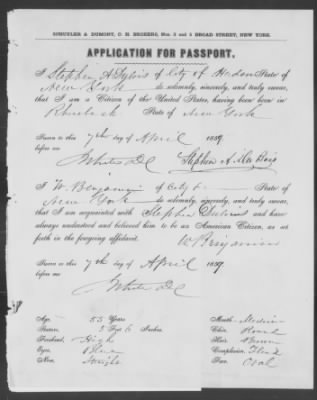 SCHUYLER A. DUMONT, C. H. BROKERS, Nos. 3 and 5 BROAD STREET, NEW YORK.
APPLICATION FOR PASSPORT.
I Stephen A of City of Hudson State of
New York do solemnly, sincerely, and truly swear,
that I am a Citizen of the United States, having been born in
Rhinebeck State of New York
Sworn to this 7th day of April 1859
before me
Stephen A
I W. Benjamin of City of State of
New York do solemnly, sincerely, and truly swear,
that I am acquainted with Stephen and have
always understood and believed him to be an American Citizen, as set
forth in the foregoing affidavit.
W Benjamin
Sworn to this 7th day of April 1859
before me
Age 53 Years
Stature 5 Feet 6 Inches
Forehead High
Eyes Blue
Nose Straight
Mouth Medium
Chin Round
Hair Brown
Complexion
Face Oval